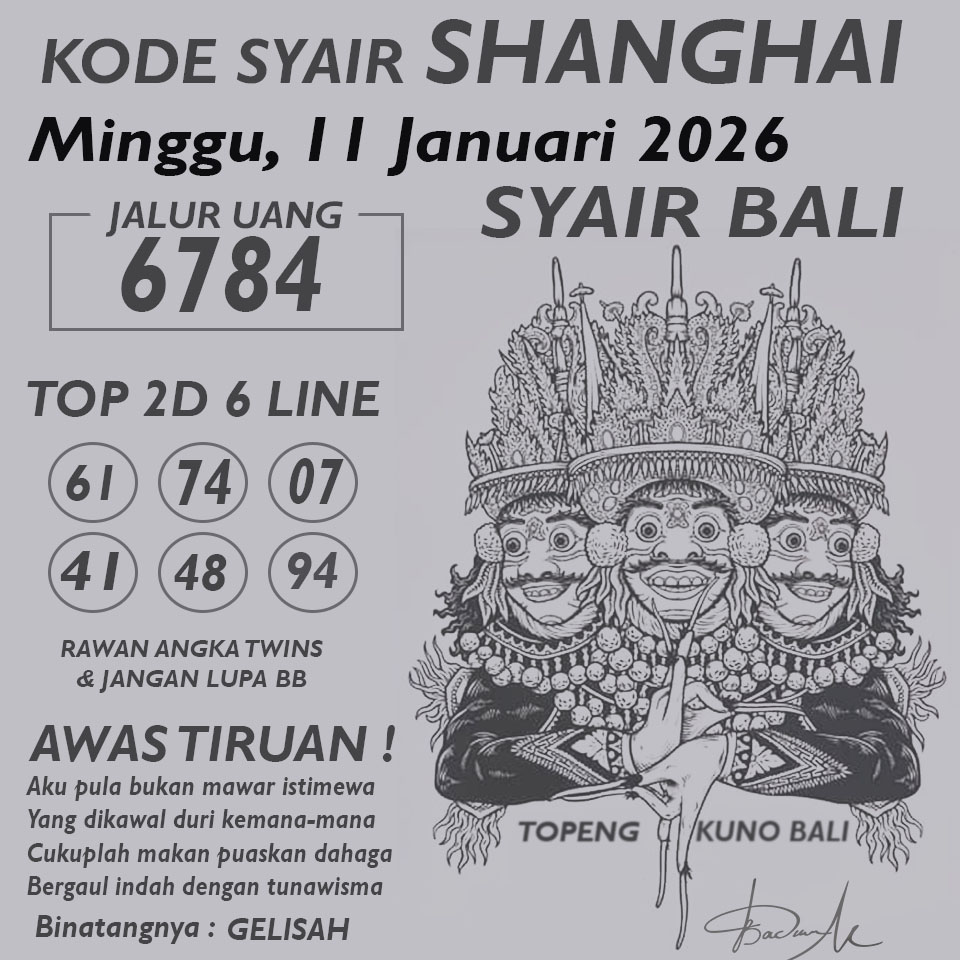 KODE SYAIR SHANGHAI
Minggu, 11 Januari 2026
SYAIR BALI
JALUR UANG
6784
TOP 2D 6 LINE
61 74 07
41 48 94
RAWAN ANGKA TWINS
& JANGAN LUPA BB
AWAS TIRUAN !
Aku pula bukan mawar istimewa
Yang dikawal duri kemana-mana
Cukuplah makan puaskan dahaga
Bergaul indah dengan tunawisma
Binatangnya : GELISAH
TOPENG KUNO BALI